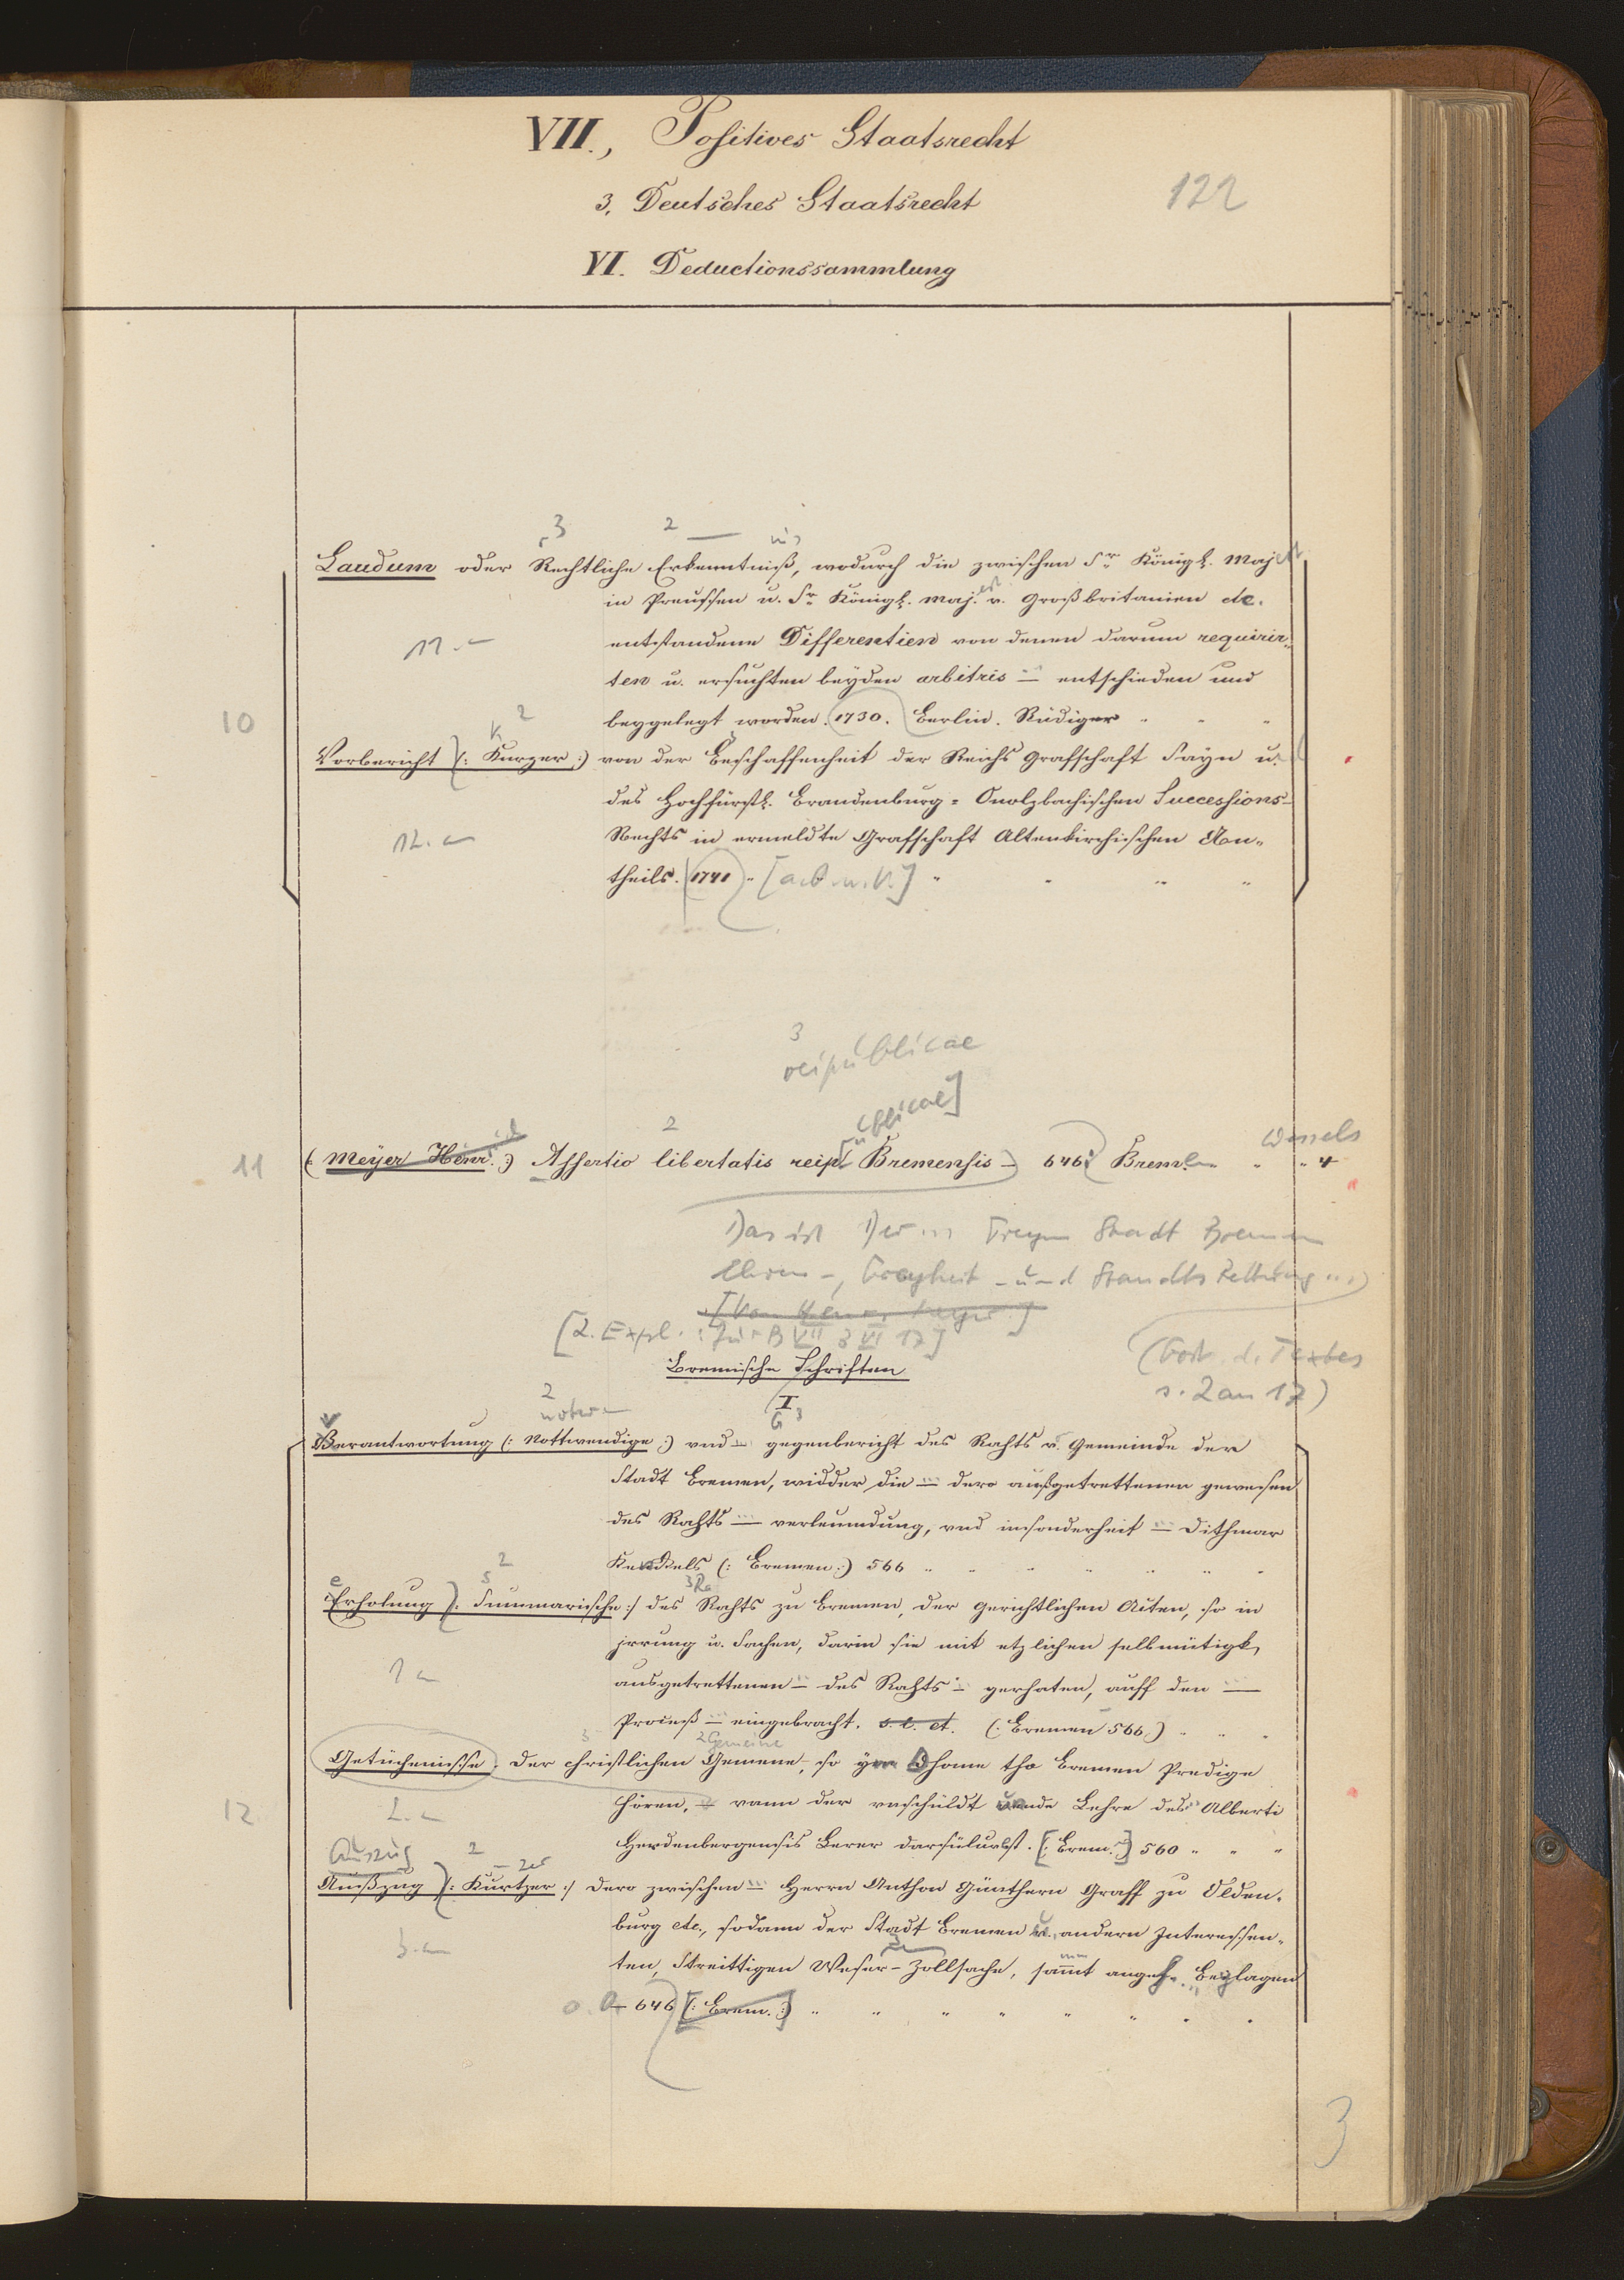 VII., Positives Staatsrecht
3, Deutsches Staatsrecht
122
VI. Deductionssammlung
3 2
Laudum oder Rechtliche Erkenntniß, wodurch die zwischen Sr. Königl. Maj
in Preussen u. Sr. Königl. Maj. v. Großbritanien etc.
11.
entstandene Differentien von denen darum requirir-
ten u. ersuchten beyden arbitris — entschieden und
10
beygelegt worden. 1730. Berlin. Rüdiger
K 2
Vorbericht (: Kurzer :) von der Beschaffenheit der Reichs Grafschaft Sayn u.
des Hochfürstl. Brandenburg = Onolzbachischen Successions-
12.
Rechts in ermeldte Grafschaft Altenkirchischen An-
theils. (1741)
3
reipublicae
blicae]
2
Wessels
11
(: Meyer Henr. :) Assertio libertatis reip. Bremensis — 646. Brem. 4
Das ist Freyen Stadt Bremen
Ehren-, Freyheit- und Standts Rettung ...)
[2. Expl.: zu B VII 3 VI 17]
(Fort. d. Textes
s. 2 an 17)
Bremische Schriften
I
2
G 3
Verantwortung (: Nottwendige :) vnd — gegenbericht des Rahts v. Gemeinde der
Stadt Bremen, widder die — dero außgetrettenen gewesen
des Rahts — verleumdung, vnd insonderheit — Dithmar
Kenckels (: Bremen :) 566
e S 2
3 Ra
Erholung (: Summarische :) des Rahts zu Bremen, der gerichtlichen Acten, so in
jrrung u. Sachen, darin sie mit etzlichen selbmütigk
1
ausgetrettenen — des Rahts — gerhaten, auff den —
Proceß — eingebracht. s. l. et. (: Bremen 566.)
3 2 Gemeine
Getüchenisse. der christlichen Gemene, so ym Dhome tho Bremen Predige
12
2.
hören, — vann der vnschüldt vnde Lehre des Alberti
Herdenbergensis Lerer darsüluest. [: Brem. :] 560
Auszug
2
zer
Außzug (: Kurtzer :) dero zwischen — Herrn Anthon Günthern Graff zu Olden-
burg etc., sodann der Stadt Bremen u. andern Interessen-
3.
ten, Streittigen Weser-Zollsache, sammt angeh. Beylagen
o. O. 646 [: Brem. :]
3